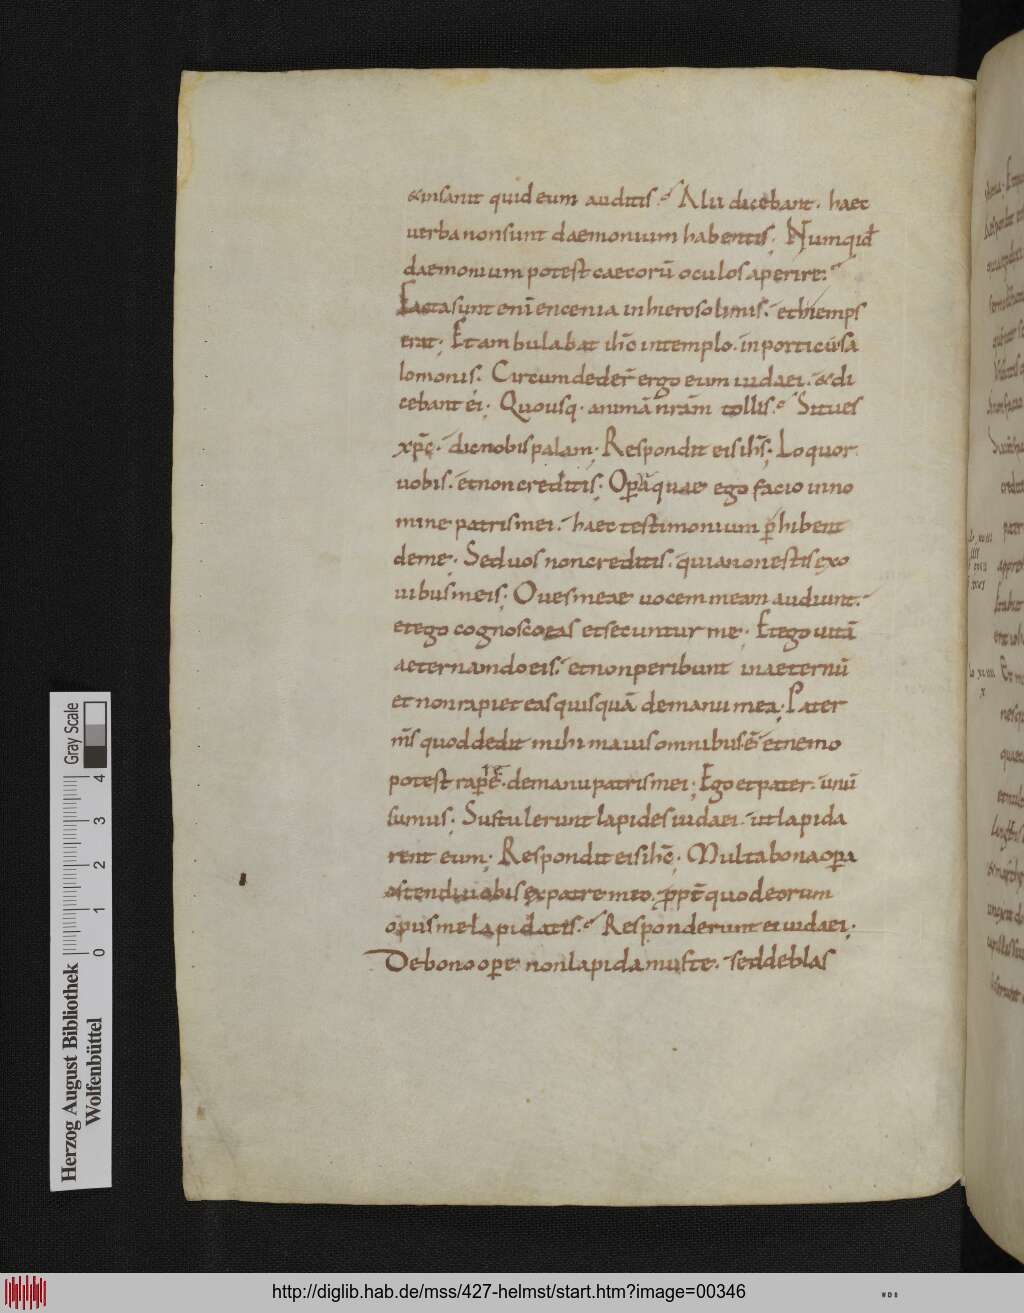 & insanit quid eum auditis. Alii dicebant. haec
uerba non sunt daemonium habentis; Numqid
daemonium potest caecorū oculos aperire:
Facta sunt enī encenia in hierosolimis. et hiemps
erat; Et ambulabat ihc̄ in templo. in porticu sa
lomonis. Circumdeder̄ ergo eum iudaei. & di
cebant ei; Quousq; animā nrām tollis. Si tu es
xp̄c. dic nobis palam; Respondit eis ihs̄; Loquor
uobis. et non creditis; Opera quae ego facio in no
mine patris mei. haec testimonium phibent
de me; Sed uos non creditis. quia non estis ex o
uibus meis; Oues meae uocem meam audiunt.
et ego cognosco eas et secuntur me; Et ego uitā
aeternam do eis. et non peribunt in aeternū
et non rapiet eas quisquā de manu mea; Pater
ms̄ quod dedit mihi maius omnibus ē et nemo
potest rapere de manu patris mei; Ego et pater unū
sumus; Sustulerunt lapides iudaei. ut lapida
rent eum; Respondit eis ihc̄; Multa bona opa
ostendi uobis ex patre meo. ppt̄ quod eorum
opus me lapidatis. Responderunt ei iudaei;
De bono opere non lapidamus te. sed de blas
Herzog August Bibliothek
Wolfenbüttel
0 1 2 3 4
Gray Scale
http://diglib.hab.de/mss/427-helmst/start.htm?image=00346